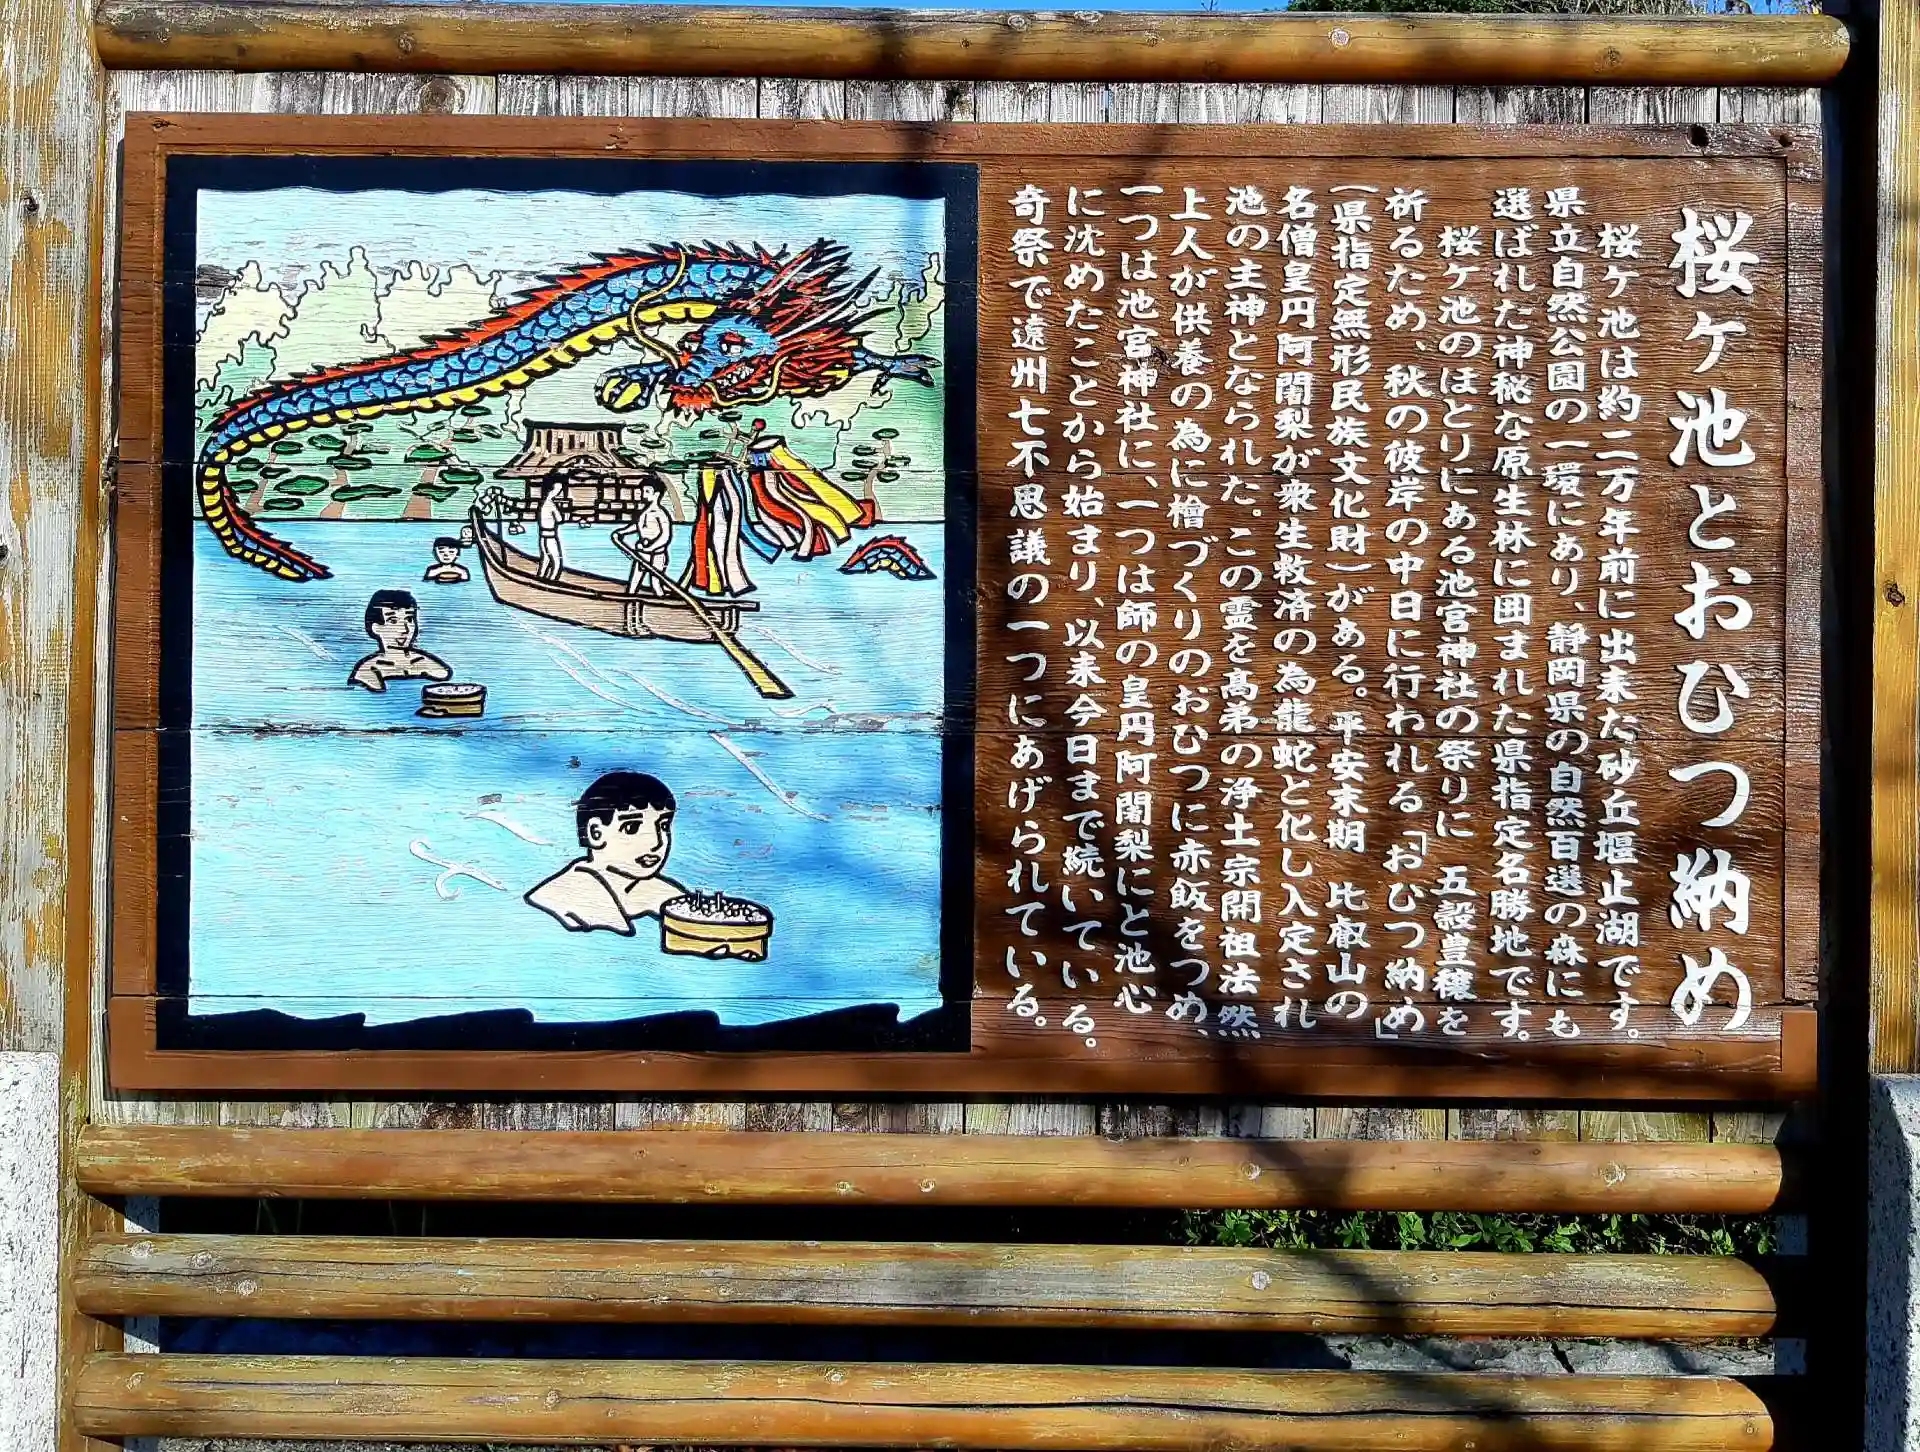 桜ケ池とおひつ納め
桜ケ池は約二万年前に出来た砂丘堰止湖です。
県立自然公園の一環にあり、静岡県の自然百選の森にも
選ばれた神秘な原生林に囲まれた県指定名勝地です。
桜ケ池のほとりにある池宮神社の祭りに 五穀豊穣を
祈るため、秋の彼岸の中日に行われる「おひつ納め」
(県指定無形民族文化財)がある。平安末期 比叡山の
名僧皇円阿闍梨が衆生救済の為龍蛇と化し入定され
池の主神となられた。この霊を高弟の浄土宗開祖法然
上人が供養の為に檜づくりのおひつに赤飯をつめ、
一つは池宮神社に、一つは師の皇円阿闍梨にと池心
に沈めたことから始まり、以来今日まで続いている。
奇祭で遠州七不思議の一つにあげられている。